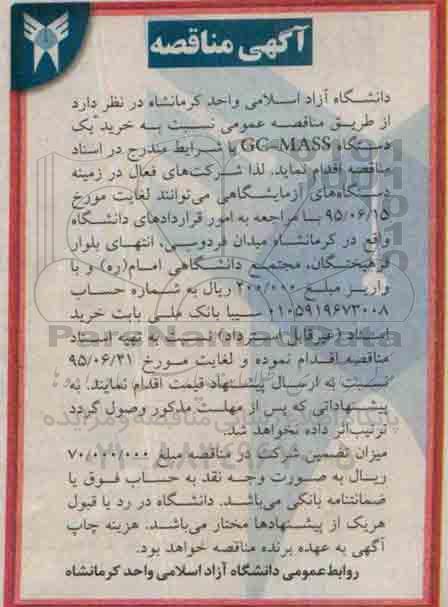 آگهی مناقصه
دانشگاه آزاد اسلامی واحد کرمانشاه در نظر دارد
از طریق مناقصه عمومی نسبت به خرید یک
دستگاه GC-MASS با شرایط مندرج در اسناد
مناقصه اقدام نماید. لذا شرکت‌های فعال در زمینه
دستگاه‌های آزمایشگاهی می‌توانند لغایت مورخ
۹۵/۰۶/۱۵ با مراجعه به امور قراردادهای دانشگاه
واقع در کرمانشاه میدان فردوسی، انتهای بلوار
فرهیختگان، مجتمع دانشگاهی امام(ره) و با
واریز مبلغ ۲۰۰/۰۰۰ ریال به شماره حساب
۰۱۰۵۹۱۹۶۷۳۰۰۸ سیبا بانک ملی بابت خرید
اسناد (غیرقابل استرداد) نسبت به تهیه اسناد
مناقصه اقدام نموده و لغایت مورخ ۹۵/۰۶/۳۱
نسبت به ارسال پیشنهاد قیمت اقدام نمایند. به
پیشنهاداتی که پس از مهلت مذکور وصول گردد
ترتیب‌اثر داده نخواهد شد.
میزان تضمین شرکت در مناقصه مبلغ ۷۰/۰۰۰/۰۰۰
ریال به صورت وجه نقد به حساب فوق یا
ضمانتنامه بانکی می‌باشد. دانشگاه در رد یا قبول
هریک از پیشنهادها مختار می‌باشد. هزینه چاپ
آگهی به عهده برنده مناقصه خواهد بود.
روابط‌عمومی دانشگاه آزاد اسلامی واحد کرمانشاه
ParsNamadData